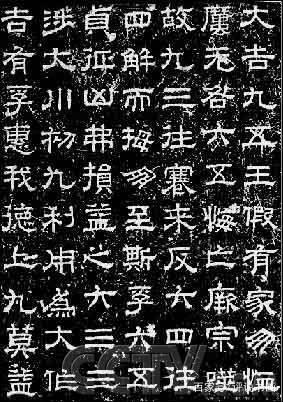 大吉九五王假有家勿恤
厲无咎六五悔亡厥宗噬
故九三往蹇来反六四往
四解而拇朋至斯孚六五
貞征凶弗損益之六三三
涉大川初九利用為大作
吉有孚惠我德上九莫益
CCTV